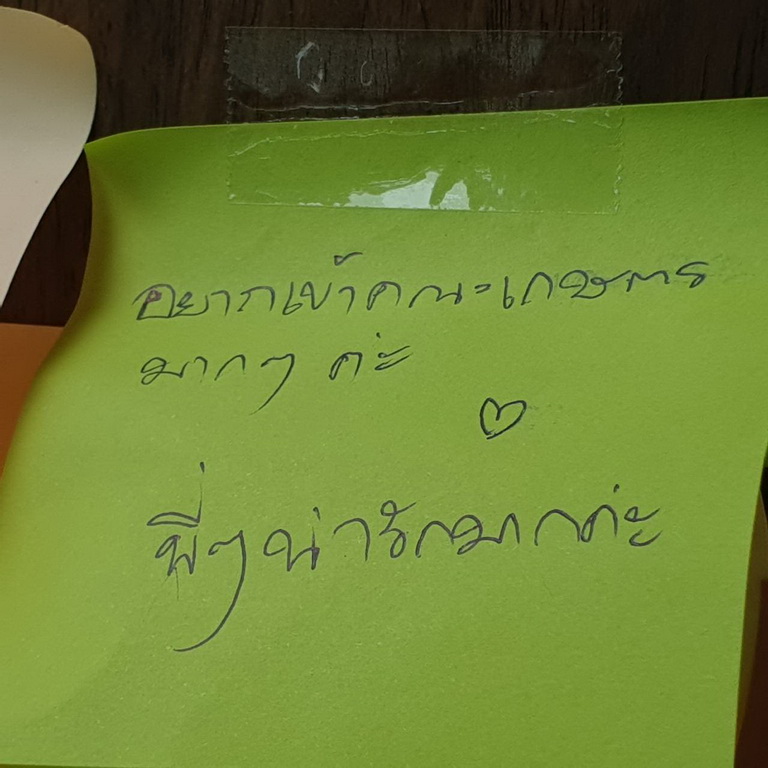 อยากเข้าคณะเกษตร
มากๆ ค่ะ
พี่ๆน่ารักมากค่ะ